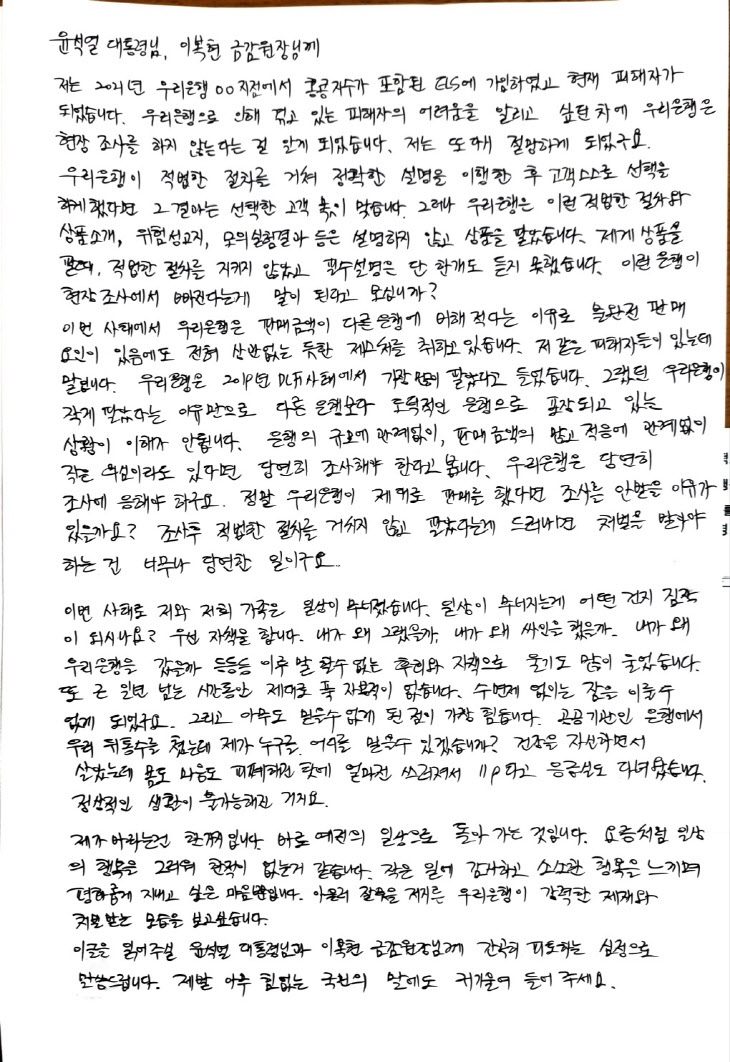 윤석열 대통령님, 이복현 금감원장님께
저는 2021년 우리은행 00지점에서 홍콩지수가 포함된 ELS에 가입하였고 현재 피해자가
되었습니다. 우리은행으로 인해 겪고 있는 피해자의 어려움을 알리고 싶던 차에 우리은행은
현장 조사를 하지 않는다는 걸 알게 되었습니다. 저는 또 다시 절망하게 되었구요.
우리은행이 적법한 절차를 거쳐 정확한 설명을 이행한 후 고객 스스로 선택을
하게 했다면 그 결과는 선택한 고객 몫이 맞습니다. 그러나 우리은행은 이런 적법한 절차와
상품소개, 위험성고지, 모의실험결과 등은 설명하지 않고 상품을 팔았습니다. 제게 상품을
팔때, 적법한 절차를 지키지 않았고 필수설명은 단 한개도 듣지 못했습니다. 이런 은행이
현장 조사에서 빠진다는게 말이 된다고 보십니까?
이번 사태에서 우리은행은 판매금액이 다른은행에 비해 적다는 이유로 불완전 판매
요인이 있음에도 전혀 상관없는 듯한 제스처를 취하고 있습니다. 저 같은 피해자들이 있는데
말입니다. 우리은행은 2019년 DLF사태에서 가장 많이 팔았다고 들었습니다. 그랬던 우리은행이
작게 팔았다는 이유만으로 다른 은행보다 도덕적인 은행으로 포장되고 있는
상황이 이해가 안됩니다. 은행의 규모에 관계없이, 판매금액의 많고 적음에 관계없이
작은 의심이라도 있다면 당연히 조사해야 한다고 봅니다. 우리은행은 당연히
조사에 응해야 하구요. 정말 우리은행이 제대로 판매를 했다면 조사를 안받을 이유가
있을까요? 조사후 적법한 절차를 거치지 않고 팔았다는게 드러나면 처벌을 받아야
하는 건 너무나 당연한 일이구요..
이번 사태로 저와 저희 가족은 일상이 무너졌습니다. 일상이 무너지는게 어떤 건지 짐작
이 되시나요? 우선 자책을 합니다. 내가 왜 그랬을까, 내가 왜 싸인을 했을까. 내가 왜
우리은행을 갔을까 등등등 이루 말 할수 없는 후회와 자책으로 울기도 많이 울었습니다.
또 근 일년 넘는 시간동안 제대로 푹 자본적이 없습니다. 수면제 없이는 잠을 이룰수
없게 되었구요. 그리고 아무도 믿을수 없게 된 점이 가장 힘듭니다. 공공기관인 은행에서
우리 뒤통수를 쳤는데 제가 누구를 어디를 믿을수 있겠습니까? 건강은 자신하면서
살았는데 몸도 마음도 피폐해진 탓에 얼마전 쓰러져서 119타고 응급실도 다녀왔습니다.
정상적인 생활이 불가능해진 거지요.
제가 바라는건 한가지입니다. 바로 예전의 일상으로 돌아 가는 것입니다. 요즘처럼 일상
의 행복을 그리워 한적이 없는거 같습니다. 작은 일에 감사하고 소소한 행복을 느끼며
평화롭게 지내고 싶은 마음뿐입니다. 아울러 잘못을 저지른 우리은행이 강력한 제재와
처벌 받는 모습을 보고싶습니다.
이글을 읽어주실 윤석열 대통령님과 이복현 금감원장님께 간곡히 피토하는 심정으로
말씀드립니다. 제발 아주 힘없는 국민의 말에도 귀기울여 들어 주세요.